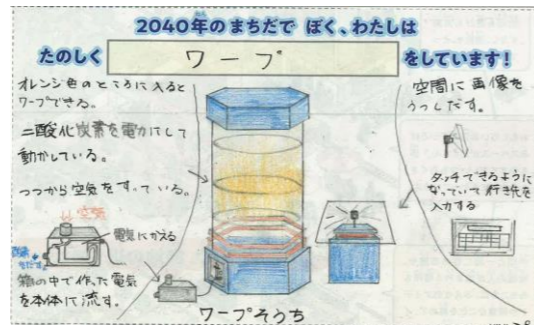 2040年のまちだで ぼく、わたしは
たのしく ワープ をしています!
オレンジ色のところに入ると
ワープできる。
二酸化炭素を電力にして
動かしている。
つつから空気をすっている。
↓空気
電気にかえる
箱の中で作った電気
を本体に流す。
ワープそうち
空間に画像を
うつしだす。
タッチできるように
なっていて行き先を
入力する